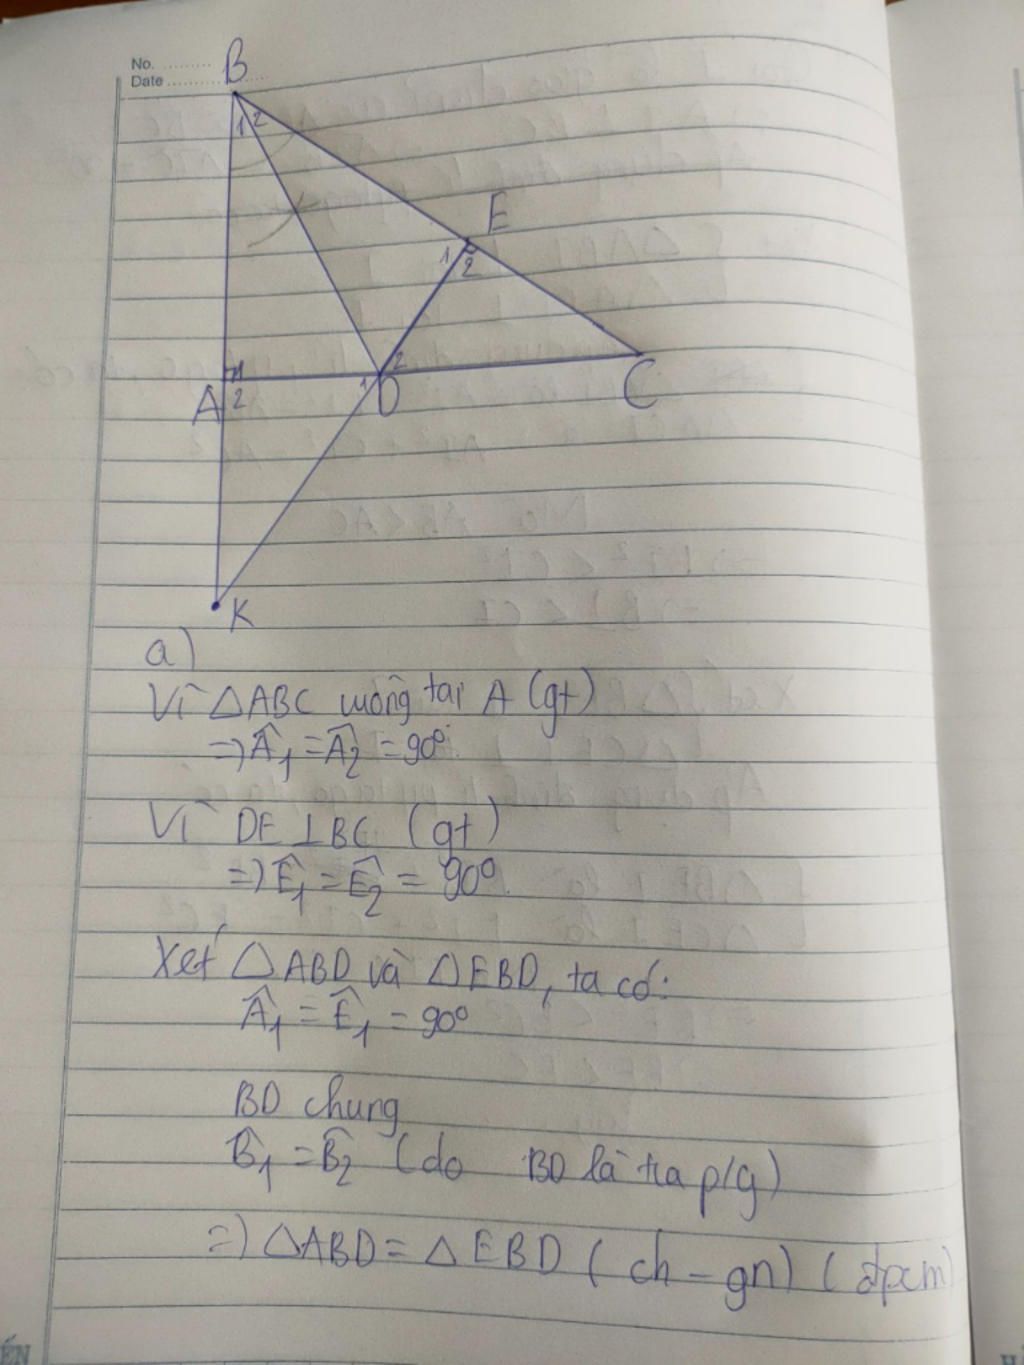 No. ..........
Date ..................
B
1 2
E
1
2
A 1
2
1 2
D
C
K
a)
Vì △ABC vuông tại A (gt)
=> Â₁ = Â₂ = 90°.
Vì DE ⊥ BC (gt)
=> Ê₁ = Ê₂ = 90°.
Xét △ABD và △EBD, ta có:
Â₁ = Ê₁ = 90°
BD chung
B̂₁ = B̂₂ (do BD là tia p/g)
=> △ABD = △EBD (ch - gn) (đpcm)
ẾN